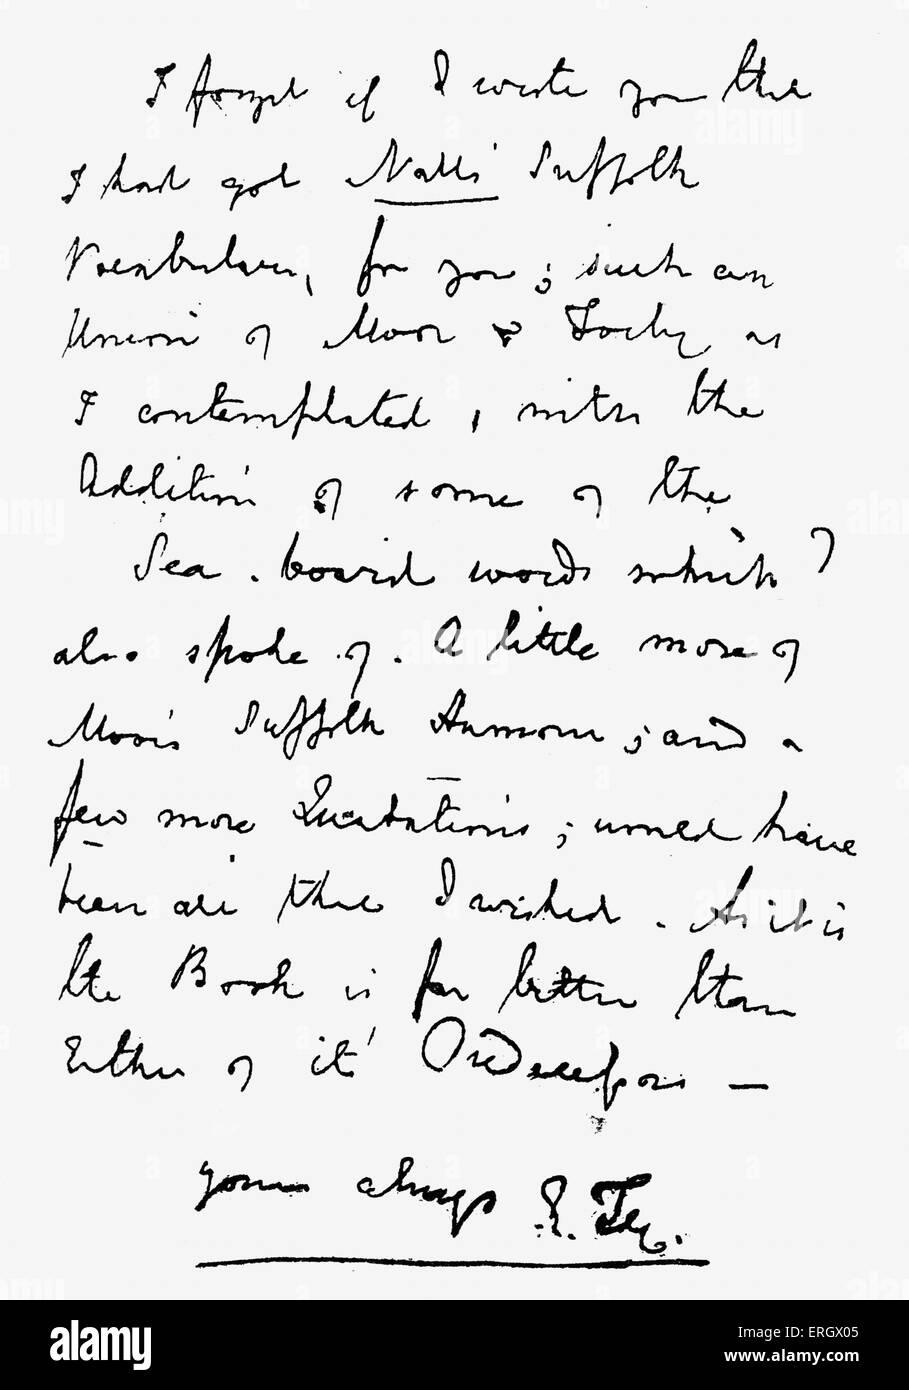 I forget if I wrote you that
I had got Nall's Suffolk
Vocabulary, for you; such an
Union of Moor & Forby as
I contemplated, with the
Addition of some of the
Sea-board words which I
also spoke of. A little more of
Moor's Suffolk Humour; and a
few more Quotations; would have
been all that I wished. As it is
the Book is far better than
Either of it's Predecessors —
yours always E. FG.
alamy
Image ID: ERGX05
www.alamy.com